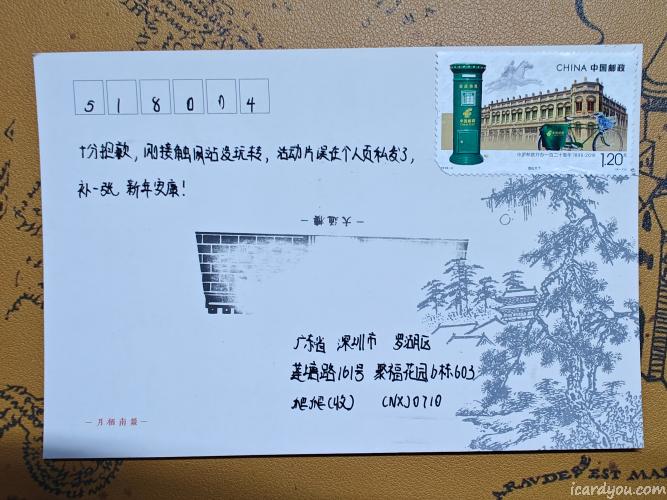 CHINA 中国邮政
5 1 8 0 0 4
中国邮政
十分抱歉，刚接触网站没玩转，活动片误在个人页私发了，
补一张，新年安康！
中国邮政开办一百二十周年 1896-2016
1.20元
大通橋
广东省 深圳市 罗湖区
莲塘路161号 聚福花园6栋603
(收) CNXJ0710
icardyou.com